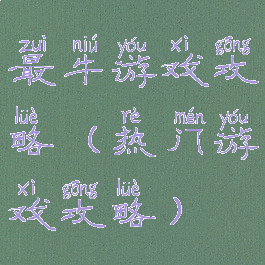 zuì niú yóu xì gōng
最牛游戏攻
lüè rè mén yóu
略（热门游
xì gōng lüè
戏攻略）